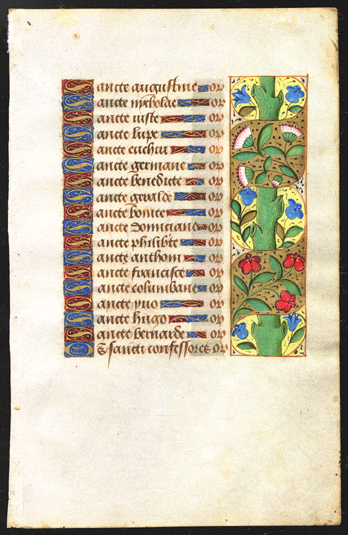 Sancte augustine or
Sancte nicholae or
Sancte iuste or
Sancte lupe or
Sancte euchari or
Sancte germane or
Sancte benedicte or
Sancte grualde or
Sancte bonite or
Sancte domiciane or
Sancte philib'te or
Sancte anthoni or
Sancte francisce or
Sancte columbane or
Sancte yuo or
Sancte hugo or
Sancte bernarde or
Os sancti confessores or